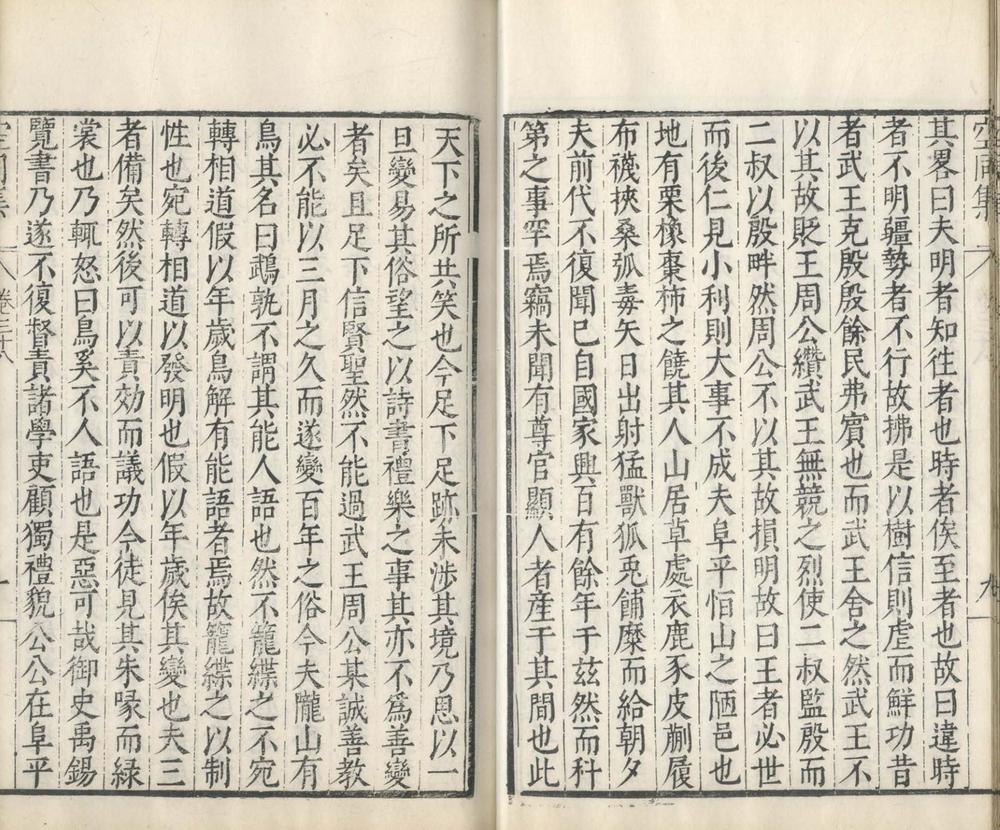 空同集
九
其畧曰夫明者知往者也時者俟至者也故曰違時
者不明疆勢者不行故拂是以樹信則虐而鮮功昔
者武王克殷殷餘民弗賓也而武王舍之然武王不
以其故貶王周公纘武王無競之烈使二叔監殷而
二叔以殷畔然周公不以其故損明故曰王者必世
而後仁見小利則大事不成夫阜平恒山之陋邑也
地有栗橡棗柿之饒其人山居草處衣鹿豕皮蒯履
布襪挾桑弧毒矢日出射猛獸狐兎餔糜而給朝夕
夫前代不復聞已自國家興百有餘年于玆然而科
第之事罕焉竊未聞有尊官顯人者産于其間也此
天下之所共笑也今足下足跡未涉其境乃思以一
旦變易其俗望之以詩書禮樂之事其亦不爲善變
者矣且足下信賢聖然不能過武王周公某誠善教
必不能以三月之久而遂變百年之俗今夫隴山有
鳥其名曰鵡孰不謂其能人語也然不籠緤之不宛
轉相道假以年歲鳥解有能語者焉故籠緤之以制
性也宛轉相道以發明也假以年歲俟其變也夫三
者備矣然後可以責効而議功今徒見其朱喙而緑
裳也乃輒怒曰鳥奚不人語也是惡可哉御史禹錫
覽書乃遂不復督責諸學吏顧獨禮貌公公在阜平
空同集
卷三十八